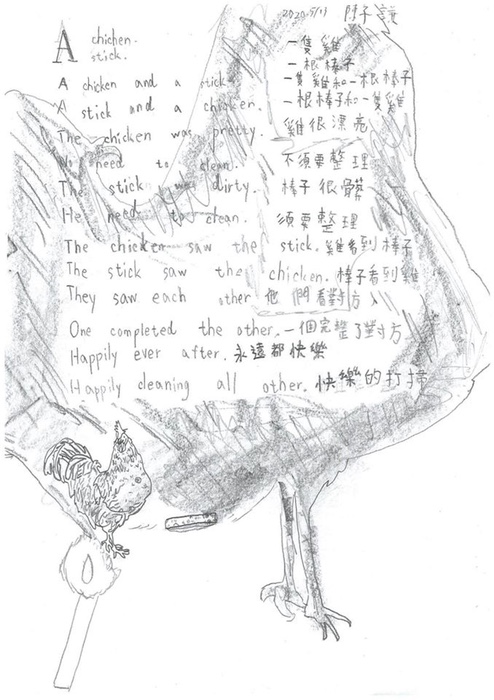 2020.5/13
A chichen.
stick.
一隻雞
一根棒子
A chicken and a stick
一隻雞和一根棒子
A stick and a chicken.
一根棒子和一隻雞
The chicken was pretty.
雞很漂亮
No need to clean.
不須要整理
The stick was dirty.
棒子很髒
He need to clean.
須要整理
The chicken saw the stick. 雞看到棒子
The stick saw the chicken. 棒子看到雞
They saw each other 他們看對方
One completed the other. 一個完整了對方
Happily ever after. 永遠都快樂
Happily cleaning all other. 快樂的打掃